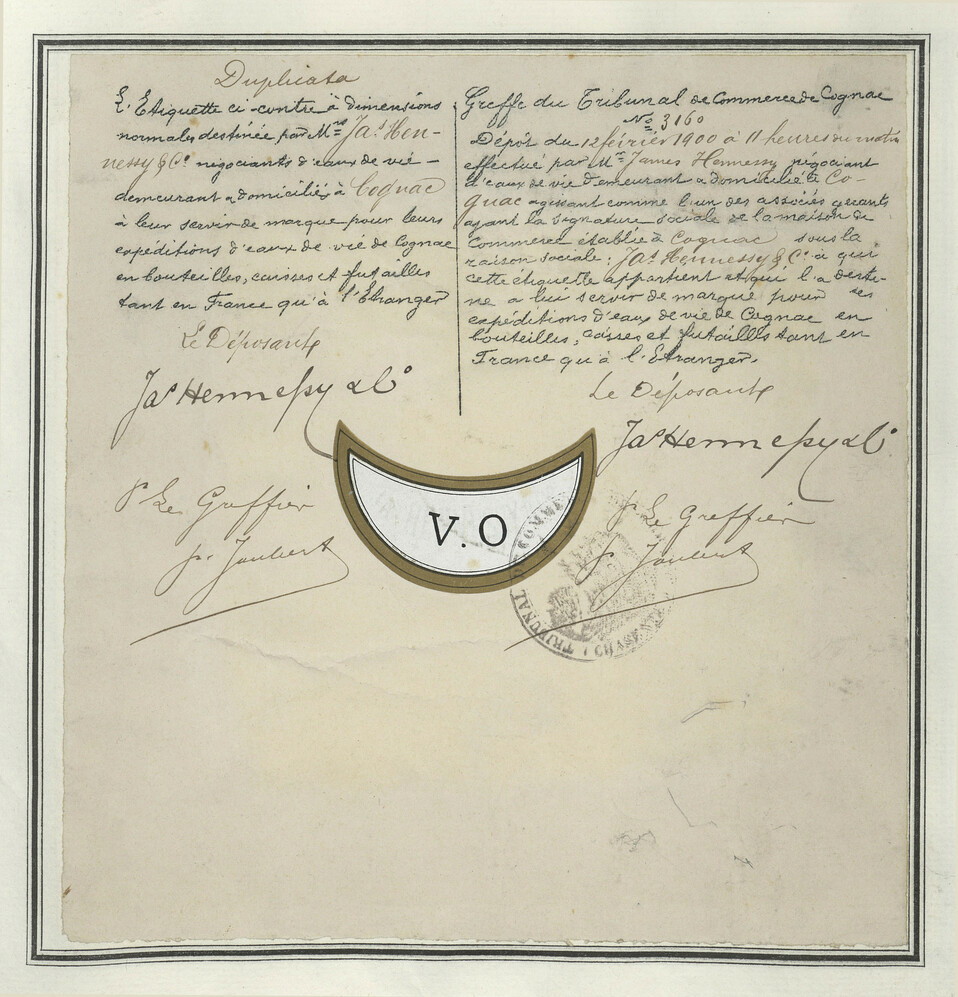 Duplicata
L'Etiquette ci-contre à dimensions
normales destinée par Mrs Jas Hen-
nessy & Co négociants d'eaux de vie -
demeurant & domiciliés à Cognac
à leur servir de marque pour leurs
expéditions d'eaux de vie de Cognac
en bouteilles, caisses et futailles
tant en France qu'à l'Etranger
Le Déposant
Jas Hennessy & Co
Pr Le Greffier
p. Joubert
Greffe du Tribunal de Commerce de Cognac
No 3160
Dépôt du 12 février 1900 à 11 heures du matin
effectué par Mr James Hennessy négociant
d'eaux de vie demeurant & domicilié à Co-
gnac agissant comme l'un des associés gérants
ayant la signature sociale de la maison de
Commerce établie à Cognac sous la
raison sociale : Jas Hennessy & Co à qui
cette étiquette appartient et qui l'a desti-
née à lui servir de marque pour ses
expéditions d'eaux de vie de Cognac en
bouteilles, caisses et futailles tant en
France qu'à l'Etranger.
Le Déposant
Jas Hennessy & Co
Pr Le Greffier
p. Joubert
V.O
TRIBUNAL DE COMMERCE